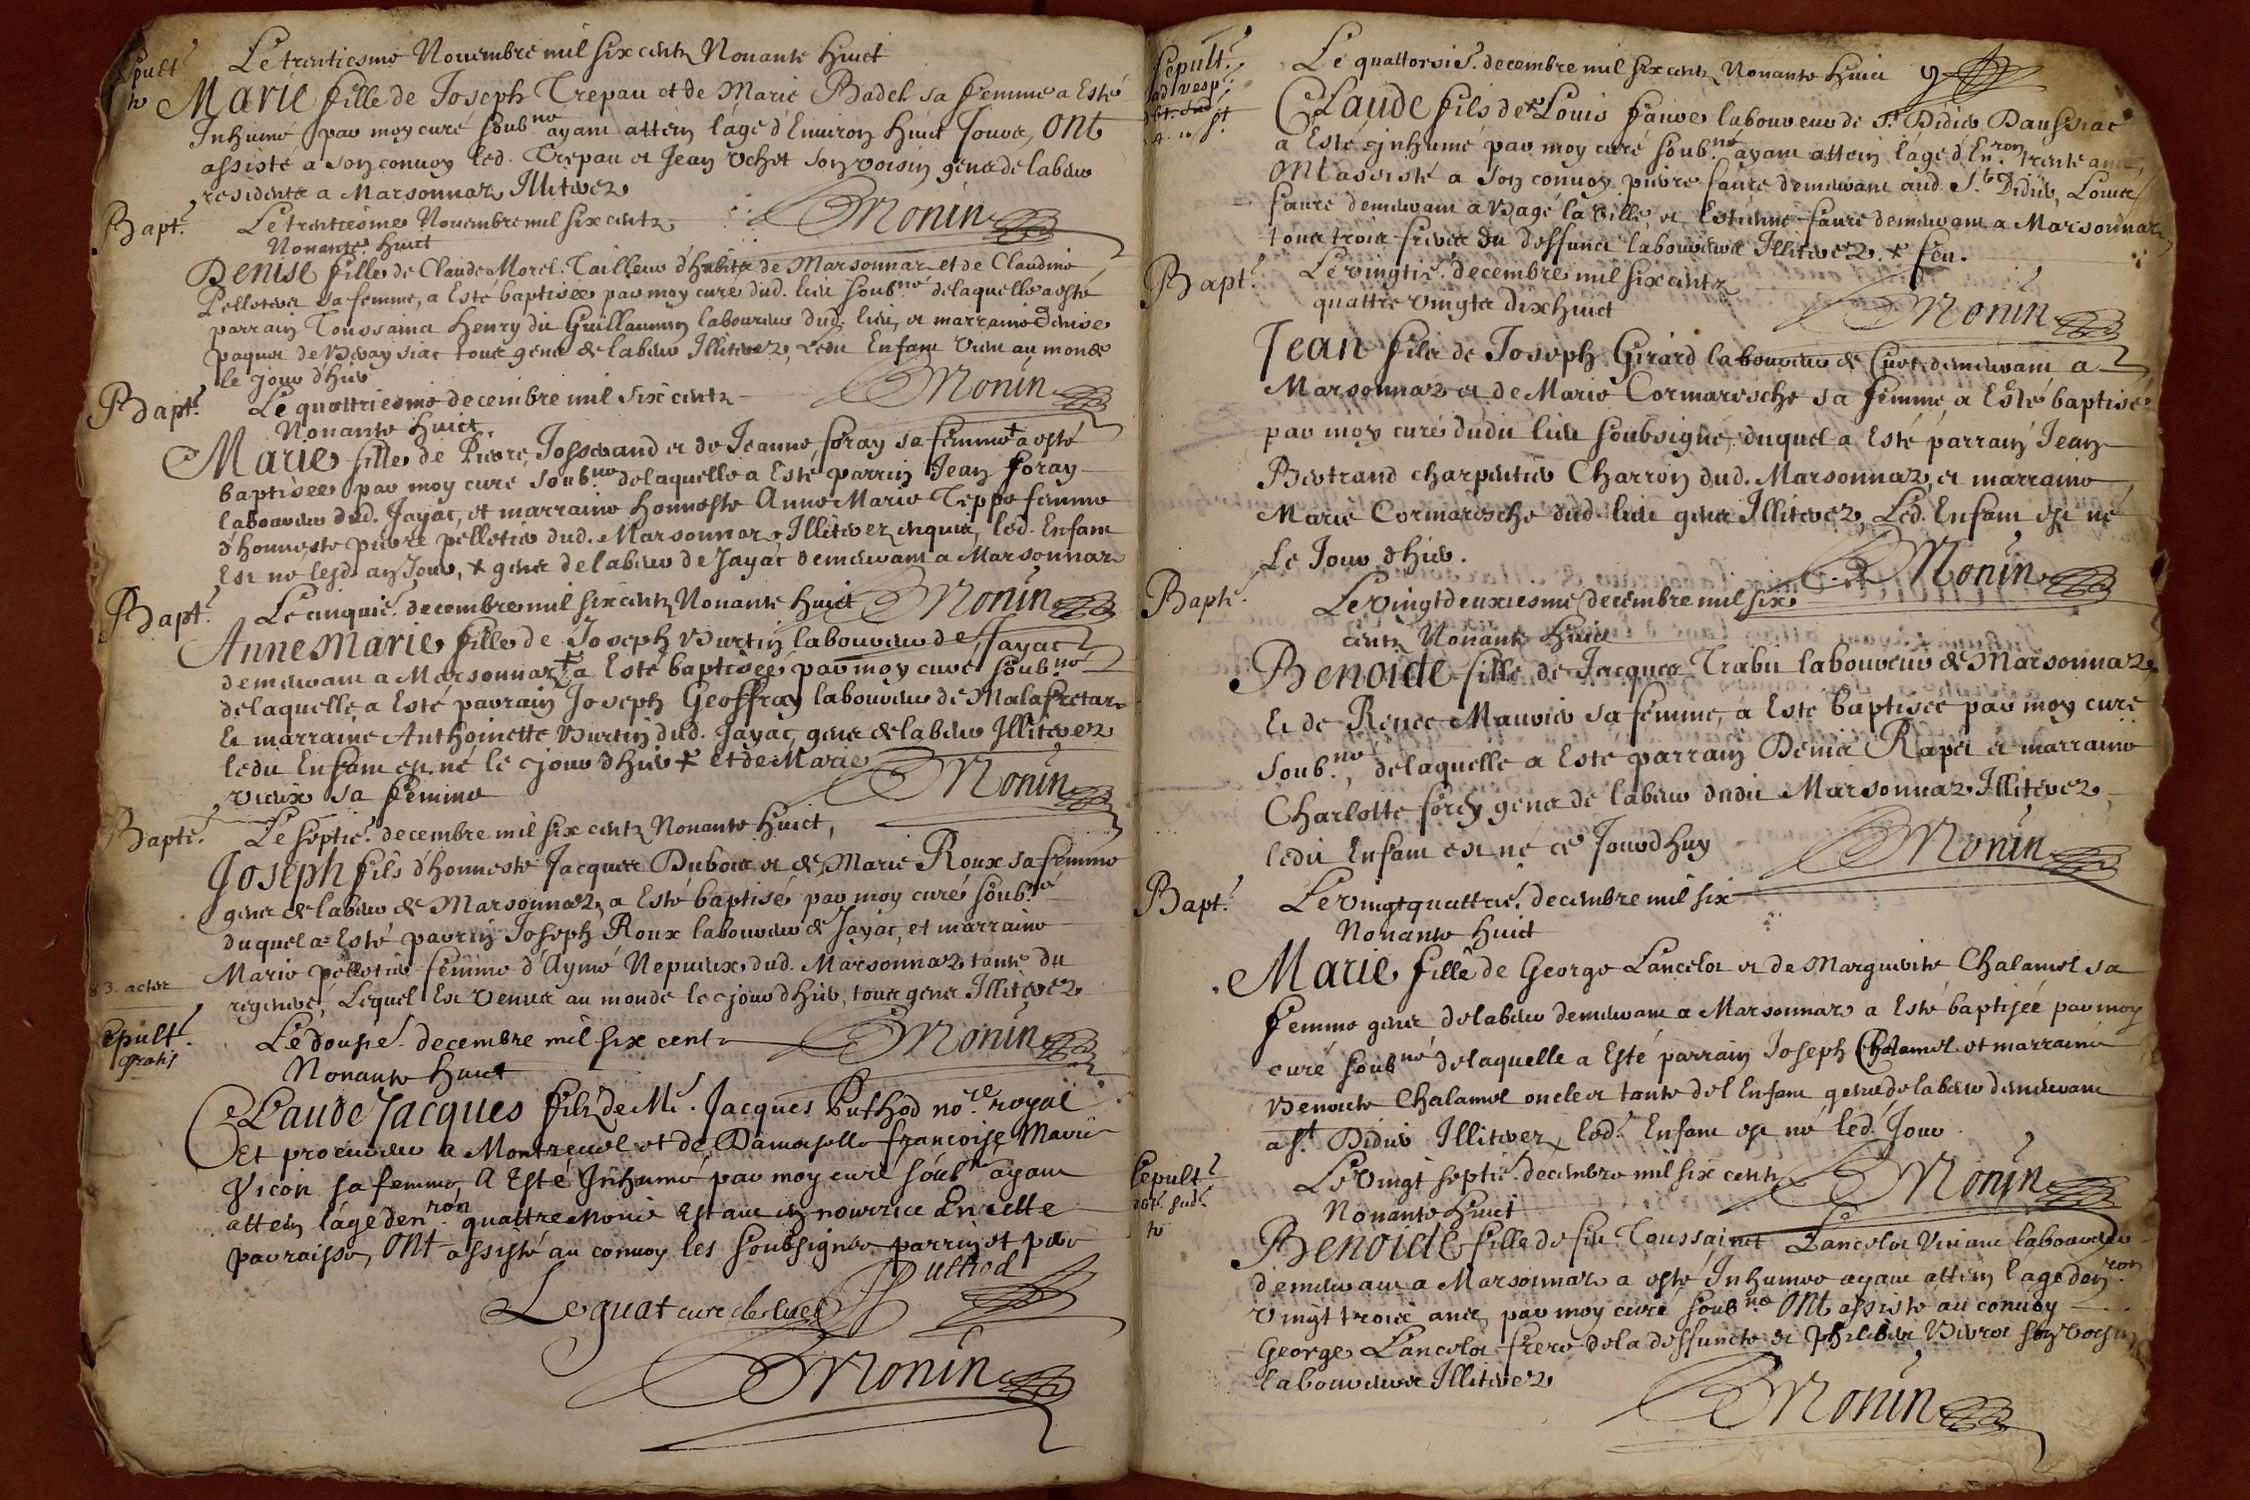 Sepult.
Le trentiesme Novembre mil six cents Nonante huict
Marie fille de Joseph Trepau et de Marie Badel sa femme a Esté
Inhumé par moy curé soub.né ayant attein l'age d'Environ huict Jours, Ont
assisté a son convoy led. Trepau et Jean Vchet son voisin gens de labeur
residents a Marsonnaz Illiterez
Monin
Bapt.
Le trentiesme Novembre mil six cents
Nonante huict
Denise fille de Claude Morel Tailleur d'habits de Marsonnaz et de Claudine
Pelletier sa femme, a Esté baptisée par moy curé dud. lieu soub.né de laquelle a esté
parrain Toussainct Henry du Guillaumin laboureur dud. lieu, et marraine Denise
paquet de tous gens de labeur Illiterez, Ledit Enfant venu au monde
le jour d'hier
Monin
Bapt.
Le quattriesme decembre mil six cents
Nonante huict
Marie fille de Pierre Josserand et de Jeanne foray sa femme + a esté
baptisée par moy curé soub.né de laquelle a Esté parrin Jean foray
laboureur dud. Jayac, et marraine honneste Anne Marie Teppe femme
d'honneste pierre pelletier dud. Marsonnaz Illiterez enquis, led. Enfant
Est né lesd. an, Jour, + gens de labeur de Jayac demeurant a Marsonnaz
Monin
Bapt.
Le cinquie. decembre mil six cents Nonante huict
Anne Marie fille de Joseph Burtin laboureur de Jayac
demeurant a Marsonnaz + a Esté baptisée par moy curé soub.né
de laquelle a Esté parrain Joseph Geoffray laboureur de Malafretaz
Et marraine Anthoinette Burtin dud. Jayac, gens de labeur Illiterez
ledit Enfant est né le jour d'hier + et de Marie
vieux sa femme
Monin
Bapte.
Le septie. decembre mil six cents Nonante huict,
Joseph fils d'honneste Jacques Dubois et de Marie Roux sa femme
gens de labeur de Marsonnaz, a Esté baptisé par moy curé soub.né
duquel a Esté parrin Joseph Roux laboureur de Jayac, et marraine
Marie pelletier femme d'Aymé Nepuieux dud. Marsonnaz tante du
regeneré, Lequel Est venus au monde le jour d'hier, tous gens Illiterez
Monin
3. actes
Sepult.
gratis
Le dousie. decembre mil six cent
Nonante huict
Claude Jacques fils de Me. Jacques Puthod no.re royal
Et procureur a Montrevel et de Damoiselle francoise Marie
Vicon sa femme, A Esté Inhumé par moy curé soub.né ayant
attein l'age d'en.ron quattre mois Estant en nourrice En cette
parroisse, Ont assisté au convoy les soubsignes parrin et pere
Leguat curé de Puthod
Monin
Sepult.
Le quattorsie. decembre mil six cents Nonante huict
Claude fils de + Louis faure laboureur de St. Didier D'aussiac
a Esté Inhumé par moy curé soub.né ayant attein l'age d'En.ron trente ans,
Ont assisté a son convoy pierre faure demeurant aud. St. Didier, Louis
faure demeurant a Bagé la ville et Estienne faure demeurant a Marsonnaz
tous trois freres du deffunct laboureurs Illiterez. + feu.
Monin
Bapt.
Le vingtie. decembre mil six cents
quattre vingts dix huict
Jean fils de Joseph Girard laboureur de Curt. demeurant a
Marsonnaz et de Marie Cormaresche sa femme, a Esté baptisé
par moy curé dudit lieu soubsigné, duquel a Esté parrain Jean
Bertrand charpentier Charron dud. Marsonnaz, et marraine
Marie Cormaresche dud. lieu gens Illiterez, Led. Enfant est né
Le Jour d'hier.
Monin
Bapte.
Le vingtdeuxiesme decembre mil six
cents Nonante huict
Benoicte fille de Jacques Trabu laboureur de Marsonnaz
Et de Renée Mauvier sa femme, a Esté baptisée par moy curé
soub.né, de laquelle a Esté parrain Denis Rapet et marraine
Charlotte forey gens de labeur dudit Marsonnaz Illiterez,
ledit Enfant est né ce Jourd'huy
Monin
Bapt.
Le vingtquattrie. decembre mil six
Nonante huict
Marie fille de George Lancelot et de Marguerite Chalamel sa
femme gens de labeur demeurant a Marsonnaz a Esté baptisée par moy
curé soub.né de laquelle a Esté parrain Joseph Chalamel et marraine
Benoicte Chalamel oncle et tante del Enfant gens de labeur demeurant
a St. Didier Illiterez, led. Enfant est né led. Jour
Monin
Sepult.
Le vingt septie. decembre mil six cents
Nonante huict
Benoicte fille de feu Toussainct Lancelot vivant laboureur
demeurant a Marsonnaz a esté Inhumée ayant attein l'age d'en.ron
vingt trois ans, par moy curé soub.né Ont assisté au convoy
George Lancelot frere de la deffuncte et philibert son voisin
laboureurs Illiterez
Monin